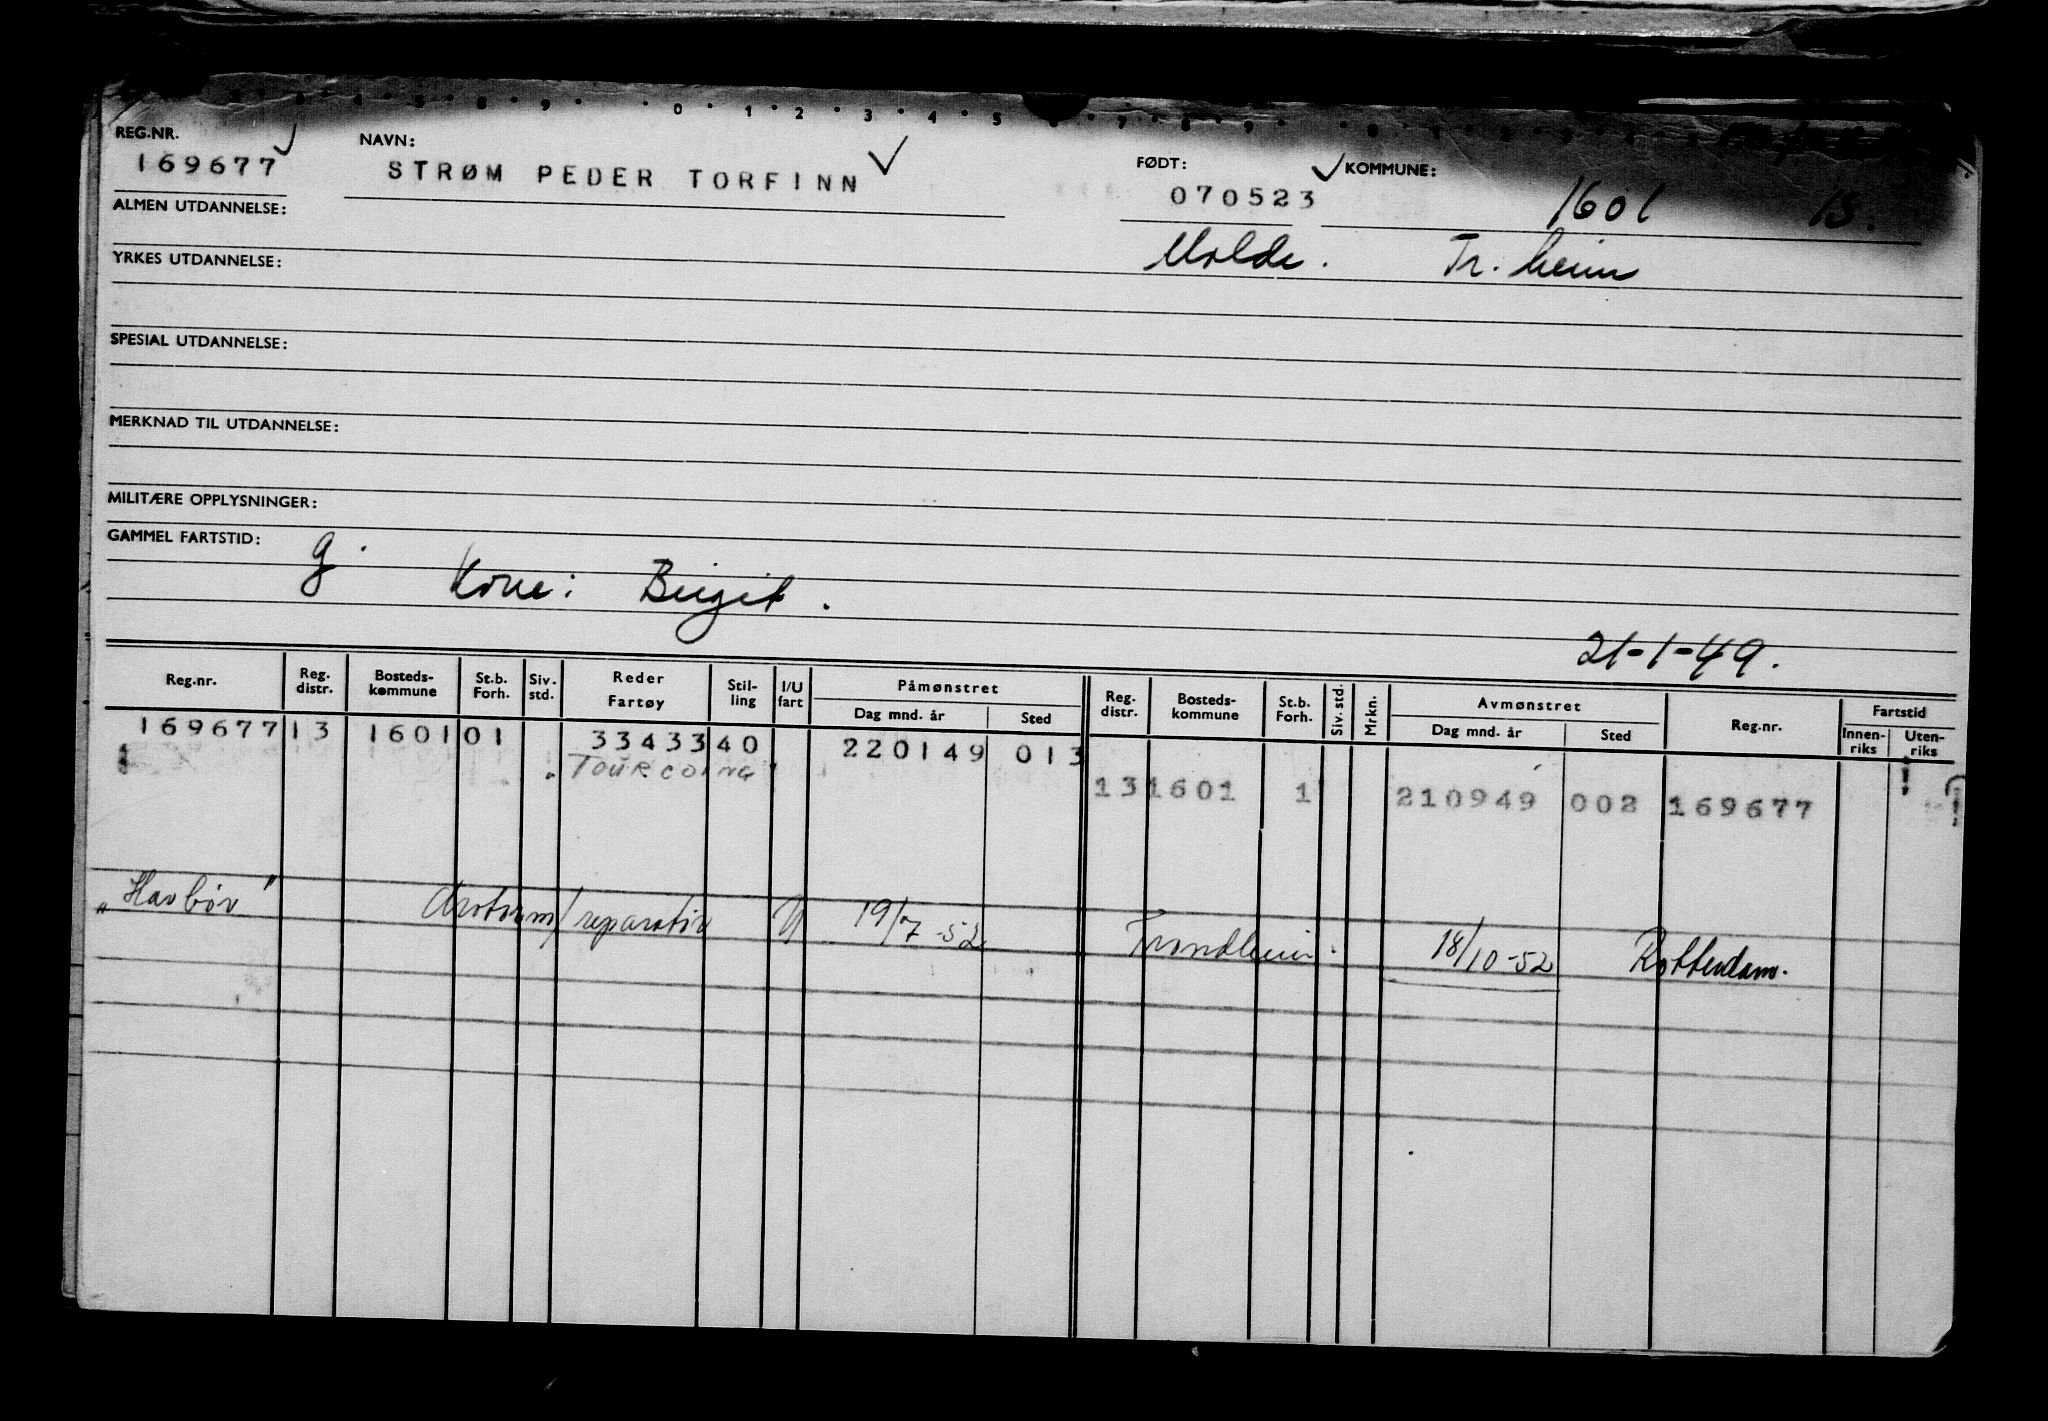 0 1 2 3 4 5
REG.NR.
169677
NAVN:
STRØM PEDER TORFINN
FØDT:
070523
KOMMUNE:
1601
ALMEN UTDANNELSE:
Molde. Tr.heim
YRKES UTDANNELSE:
SPESIAL UTDANNELSE:
MERKNAD TIL UTDANNELSE:
MILITÆRE OPPLYSNINGER:
GAMMEL FARTSTID:
g. Kone: Birgit.
21-1-49.
Reg.nr. Reg. distr. Bosteds-kommune St.b. Forh. Siv. std. Reder Fartøy Stil-ling I/U fart Påmønstret Dag mnd. år Sted Reg. distr. Bosteds-kommune St.b. Forh. Siv. std. Mrkn. Avmønstret Dag mnd. år Sted Reg.nr. Fartstid Innen-riks Uten-riks
169677 13 1601 01 33433 40 220149 013
TOURCOING
13 1601 1 210949 002 169677
"Havbör" reparatör U 19/7-52 Trondheim. 18/10-52 Rotterdam.